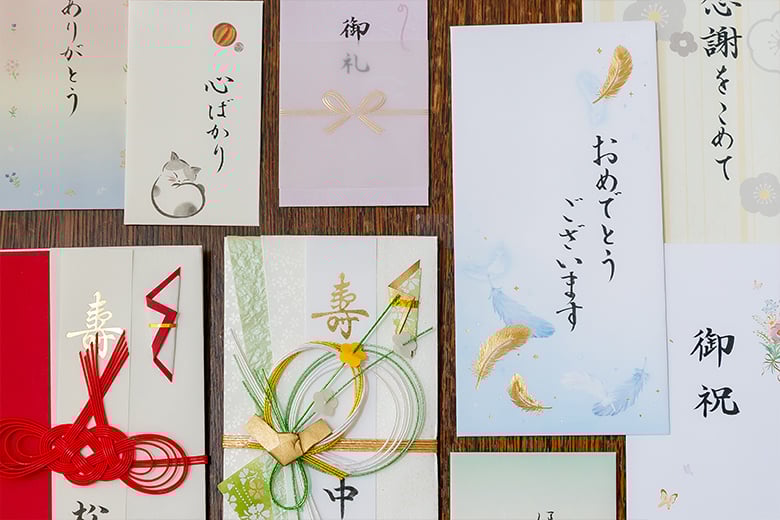 ありがとう
心ばかり
御礼
おめでとう
ございます
感謝をこめて
寿
松
寿
中
御祝
ほ